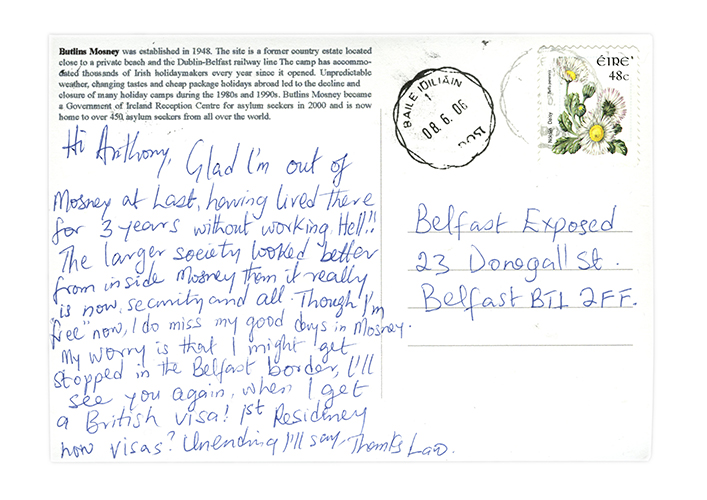 Butlins Mosney was established in 1948. The site is a former country estate located
close to a private beach and the Dublin-Belfast railway line The camp has accommo-
dated thousands of Irish holidaymakers every year since it opened. Unpredictable
weather, changing tastes and cheap package holidays abroad led to the decline and
closure of many holiday camps during the 1980s and 1990s. Butlins Mosney became
a Government of Ireland Reception Centre for asylum seekers in 2000 and is now
home to over 450, asylum seekers from all over the world.
Hi Anthony, Glad I'm out of
Mosney at Last, having lived there
for 3 years without working. Hell!!
The larger society looked better
from inside Mosney than it really
is now, security and all. Though I'm
"free" now, I do miss my good days in Mosney.
My worry is that I might get
stopped in the Belfast border, I'll
see you again, when I get
a British visa! 1st Residency
now visas? Unending I'll say. Thanks Law.
BAILE IDILIAIN
1
08.6.06
POST
ÉIRE
48c
Belfast Exposed
23 Donegall St.
Belfast BT1 2FF.